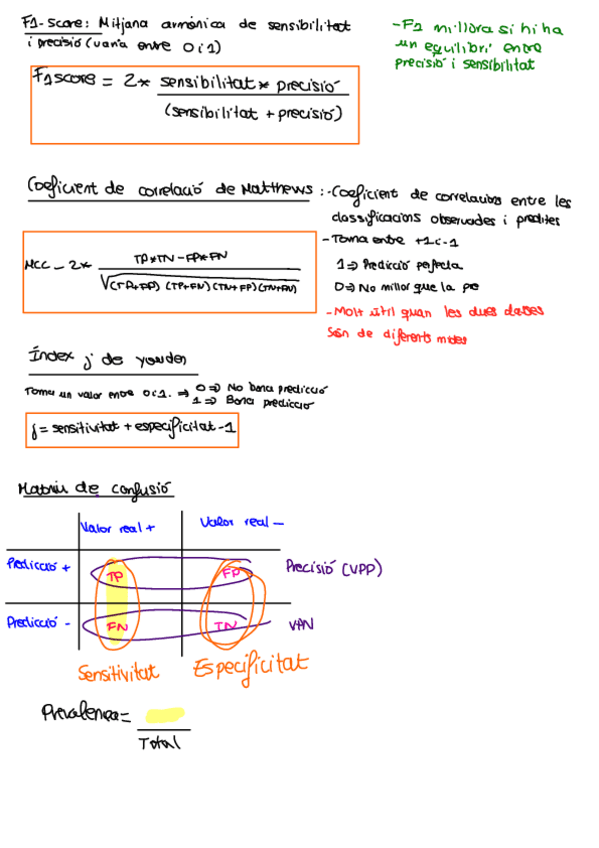 F1-Score: Mitjana armònica de sensibilitat
i precisió (varia entre 0 i 1)
F1score = 2* sensibilitat * precisió
(sensibilitat + precisió)
-F1 millora si hi ha
un equilibri entre
precisió i sensibilitat
Coeficient de correlació de Matthews : -Coeficient de correlacions entre les
classificacions observades i predites
- Toma entre +1 i -1
1 => Predicció perfecta
0 => No millor que la
- Molt útil quan les dues classes
Són de diferents mides
MCC = 2* TP*TN-FP*FN
√(TP+FP) (TP+FN) (TN+FP) (TN+FN)
Índex j de youden
Toma un valor entre 0 i 1. => 0 => No bona predicció
1 => Bona predicció
j = sensitivitat + especificitat -1
Matriu de confusió
Valor real + Valor real -
Predicció + TP FP Precisió (VPP)
Predicció - FN TN VAN
Sensitivitat Especificitat
Prevalença =
Total